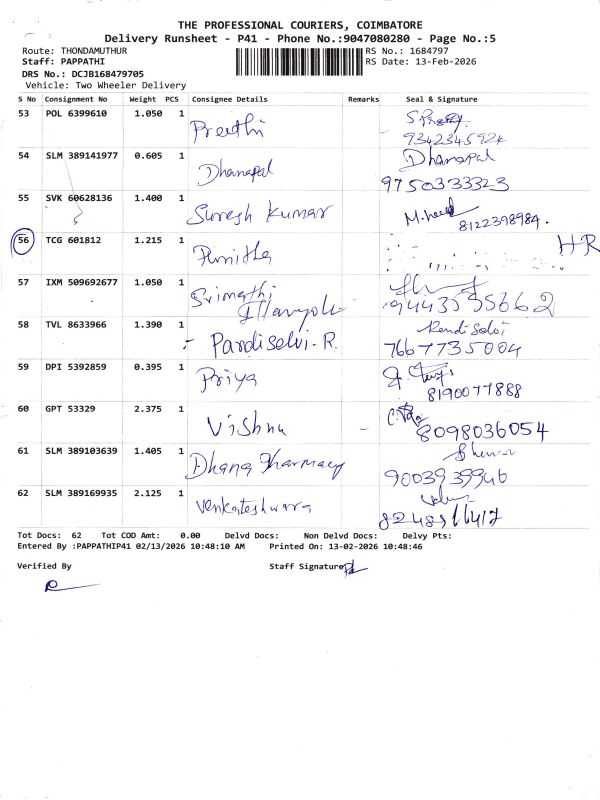 THE PROFESSIONAL COURIERS, COIMBATORE
Delivery Runsheet - P41 - Phone No.:9047080280 - Page No.:5
Route: THONDAMUTHUR
RS No.: 1684797
Staff: PAPPATHI
RS Date: 13-Feb-2026
DRS No.: DCJB168479705
Vehicle: Two Wheeler Delivery
S No Consignment No Weight PCS Consignee Details Remarks Seal & Signature
53 POL 6399610 1.050 1 Preethi
9342345924
54 SLM 389141977 0.605 1 Dhanapal Dhanapal
9750333323
55 SVK 60628136 1.400 1 Suresh Kumar
8122398984.
56 TCG 601812 1.215 1 Punitha HR
57 IXM 509692677 1.050 1 Srimathi
9443595662
58 TVL 8633966 1.390 1 Pandiselvi-R.
7667735004
59 DPI 5392859 0.395 1 Priya
8190077888
60 GPT 53329 2.375 1 Vishnu
8098036054
61 SLM 389103639 1.405 1 Dhana Pharmacy
9003939946
62 SLM 389169935 2.125 1 Venkateshwara
Tot Docs: 62 Tot COD Amt: 0.00 Delvd Docs: Non Delvd Docs: Delvy Pts:
Entered By :PAPPATHIP41 02/13/2026 10:48:10 AM Printed On: 13-02-2026 10:48:46
Verified By Staff Signature